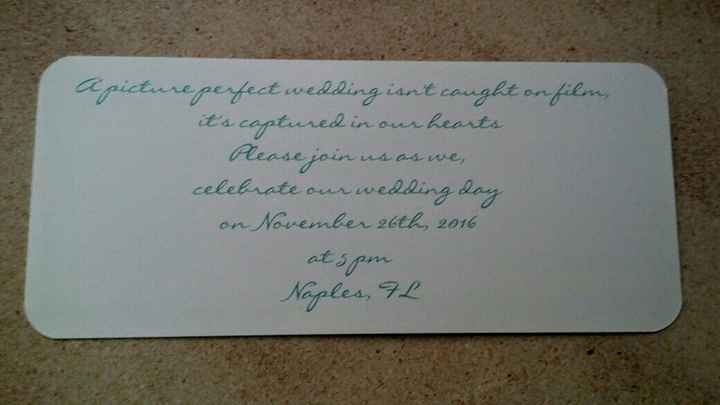 A picture perfect wedding isn't caught on film,
it's captured in our hearts
Please join us as we,
celebrate our wedding day
on November 26th, 2016
at 5 pm
Naples, FL